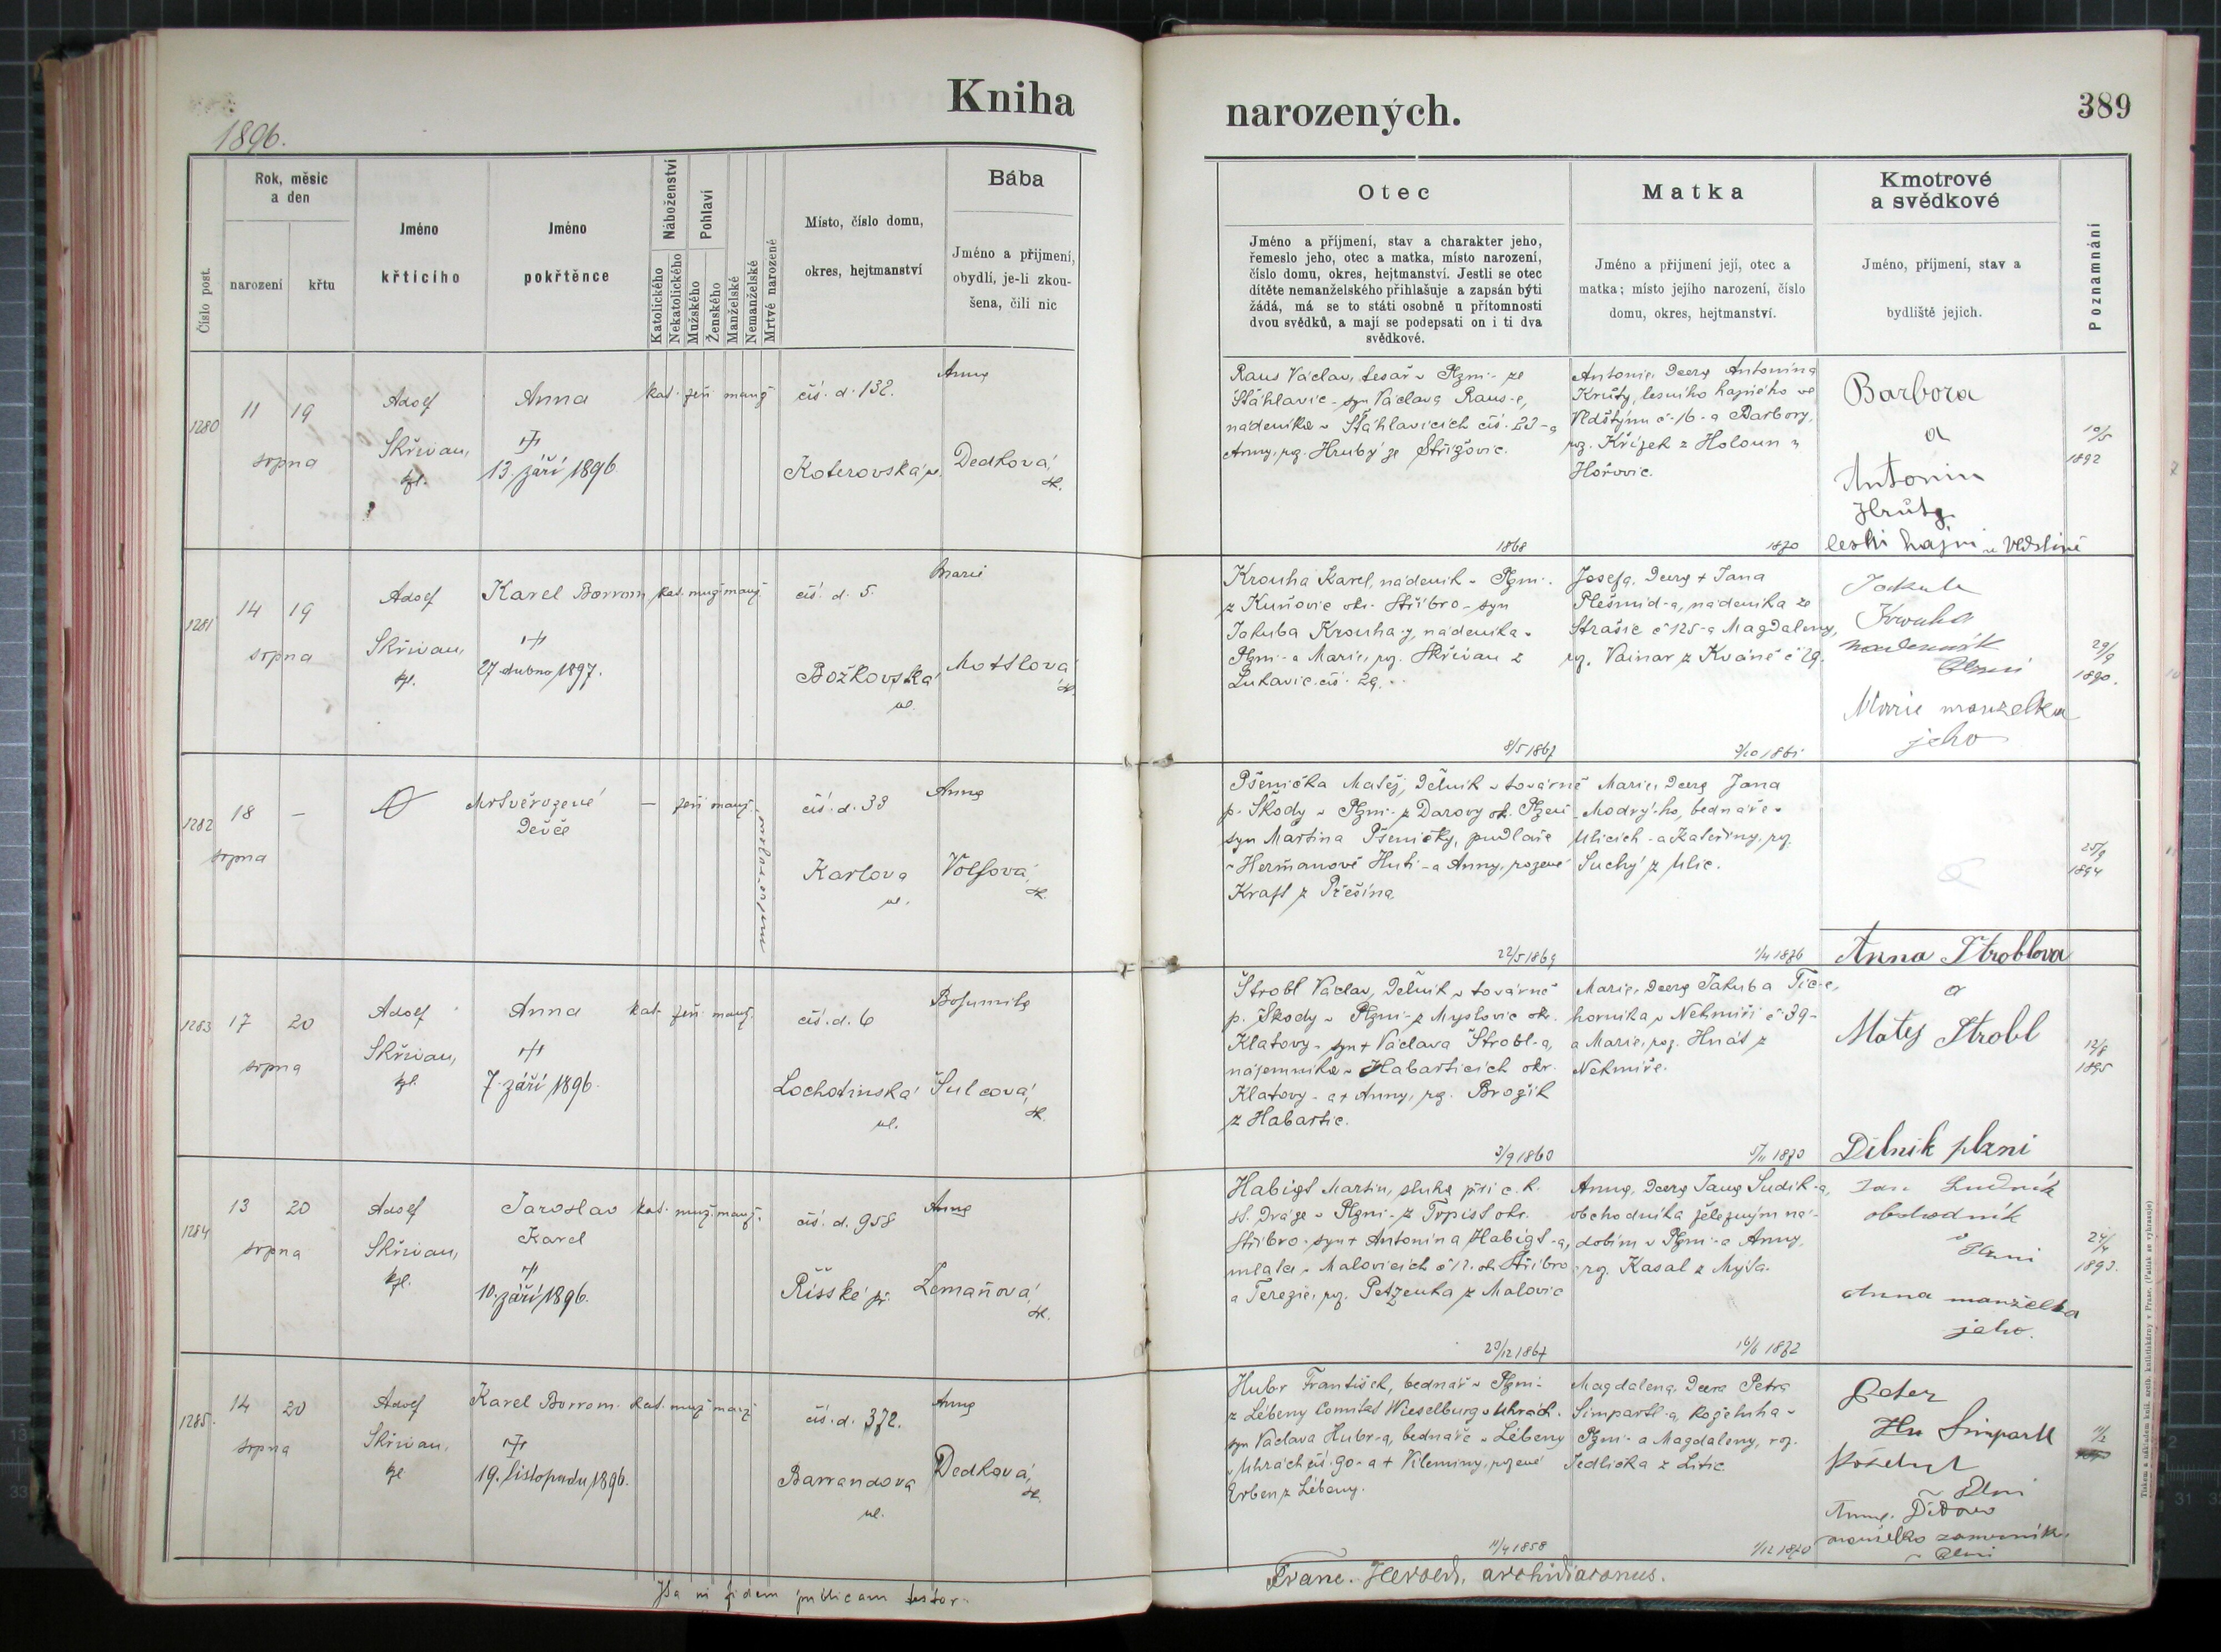 Kniha
narozených.
389
1896.
Číslo post.
Rok, měsíc
a den
narození
křtu
Jméno
křtícího
Jméno
pokřtěnce
Náboženství
Katolického
Nekatolického
Pohlaví
Mužského
Ženského
Manželské
Nemanželské
Mrtvě narozené
Místo, číslo domu,
okres, hejtmanství
Bába
Jméno a přijmení,
obydlí, je-li zkou-
šena, čili nic
Otec
Jméno a příjmení, stav a charakter jeho,
řemeslo jeho, otec a matka, místo narození,
číslo domu, okres, hejtmanství. Jestli se otec
dítěte nemanželského přihlašuje a zapsán býti
žádá, má se to státi osobně u přítomnosti
dvou svědků, a mají se podepsati on i ti dva
svědkové.
Matka
Jméno a přijmení její, otec a
matka; místo jejího narození, číslo
domu, okres, hejtmanství.
Kmotrové
a svědkové
Jméno, příjmení, stav a
bydliště jejich.
Poznamnání
1280
11
19
srpna
Adolf
Skřivan,
kpl.
Anna
13. září 1896
kat. žen. manž
čís. d. 132.
Koterovská ul.
Anna
Dedková,
zk.
Raus Václav, tesař v Plzni - ze
Šťáhlavic - syn Václava Raus-e,
nádeníka v Šťáhlavicích čís. 23 - a
Anny, roz. Hrubý ze Střížovic.
1868
Antonie, dcera Antonína
Krůty, lesního hajného ve
Vldštýnu č. 16 - a Barbory,
roz. Křížek z Holoun u
Hořovic.
1870
Barbora
a
Antonin
Hrůta
lesni hajni ve Vldštině
10/5
1892
1281
14
19
srpna
Adolf
Skřivan,
kpl.
Karel Borrom
27 dubna 1897.
kat. muž. manž.
čís. d. 5.
Božkovská
ul.
Marie
Motslová
zk.
Krouha Karel, nádeník v Plzni -
z Kuňovic okr. Stříbro - syn
Jakuba Krouha-y, nádeníka v
Plzni - a Marie, roz. Skřivan z
Lukavic čís. 29.
8/5 1867
Josefa, dcera + Jana
Plešmíd-a, nádeníka ze
Strašic č. 125 - a Magdaleny,
roz. Vainar z Kváně č. 29.
Jakub
Krouha
nadeník
Plzni
Marie manzelka
jeho
29/9
1890.
1282
18
—
srpna
Mrtvěrozené
Děvče
— žen. manž.
mrtvěrozené
čís. d. 33
Karlova
ul.
Anna
Volfová,
zk.
Pšenička Matěj, dělník v továrně
p. Škody v Plzni - z Darovy ok. Plzeň
syn Martina Pšeničky, pudlaře
v Heřmanově Huti - a Anny, rozené
Kraft z Příšína.
22/5 1869
Marie, dcera Jana
Modrý-ho, bednáře v
Ulicích - a Kateřiny, roz.
Suchý z Ulic.
1/4 1876
25/9
1894
1283
17
20
srpna
Adolf
Skřivan,
kpl.
Anna
7. září 1896.
kat. žen. manž.
čís. d. 6
Lochotinská
ul.
Bohumila
Šulcová,
zk.
Štrobl Václav, dělník v továrně
p. Škody v Plzni - z Myslovic okr.
Klatovy - syn + Václava Štrobl-a,
nájemníka v Habarticích okr.
Klatovy - a + Anny, roz. Brožík
z Habartic.
3/9 1860
Marie, dcera Jakuba Tic-e,
horníka v Nekmíři č. 39 -
a Marie, roz. Hnát z
Nekmíře.
5/11 1870
Anna Stroblova
a
Matěj Strobl
Dilnik plzni
12/8
1895
1284
13
20
srpna
Adolf
Skřivan,
kpl.
Jaroslav
Karel
10. září 1896.
kat. muž. manž.
čís. d. 958
Říšské př.
Anna
Zemaňová,
zk.
Habigt Martin, sluha při c. k.
st. dráze v Plzni - z Trpist okr.
Stříbro - syn + Antonína Habigt-a,
mlatce v Malovicích č. 17. ok. Stříbro
a Terezie, roz. Petzenka z Malovic
29/12 1867
Anna, dcera Jana Sudík-a,
obchodníka železným ná-
dobím v Plzni - a Anny,
roz. Kasal z Mýta.
16/6 1872
Jan Sudnik
obchodník
v Plzni
Anna manželka
jeho.
24/4
1893.
1285.
14
20
srpna
Adolf
Skřivan,
kpl
Karel Borrom.
19. listopadu 1896.
kat. muž manž
čís. d. 372.
Barrandova
ul.
Anna
Dedková,
zk.
Hubr František, bednář v Plzni -
z Lébeny Comitat Wieselburg v Uhrách.
syn Václava Hubr-a, bednáře v Lébeny
v Uhrách čís. 90 - a + Vilemíny, rozené
Erben z Lébeny.
11/4 1858
Magdalena, dcera Petra
Simpartl-a, koželuha v
Plzni - a Magdaleny, roz.
Jedlička z Litic
1/12 1870
Peter
Simpartl
Plzni
Ita in fidem publicam testor.
Franc. Herold, archidiaconus.
Tiskem a nákladem knih. arcib. knihtiskárny v Praze. (Patisk se vyhrazuje)